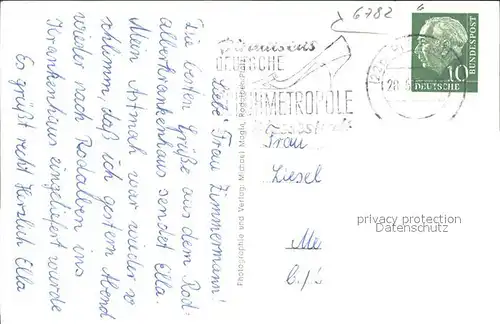 Liebe Frau Zimmermann!
Die besten Grüße aus dem Rod-
alberkrankenhaus sendet Ella.
Mein Astmah war wieder so
schlimm, daß ich gestern Abend
wieder nach Rodalben ins
Krankenhaus eingeliefert wurde
Es grüßt recht Herzlich Ella
Photographie und Verlag: Michael Mogla, Rodalben/Pfalz
6782
Pirmasens
DEUTSCHE
SCHUHMETROPOLE
10
DEUTSCHE
BUNDESPOST
Frau
Liesel
privacy protection
Datenschutz
Me